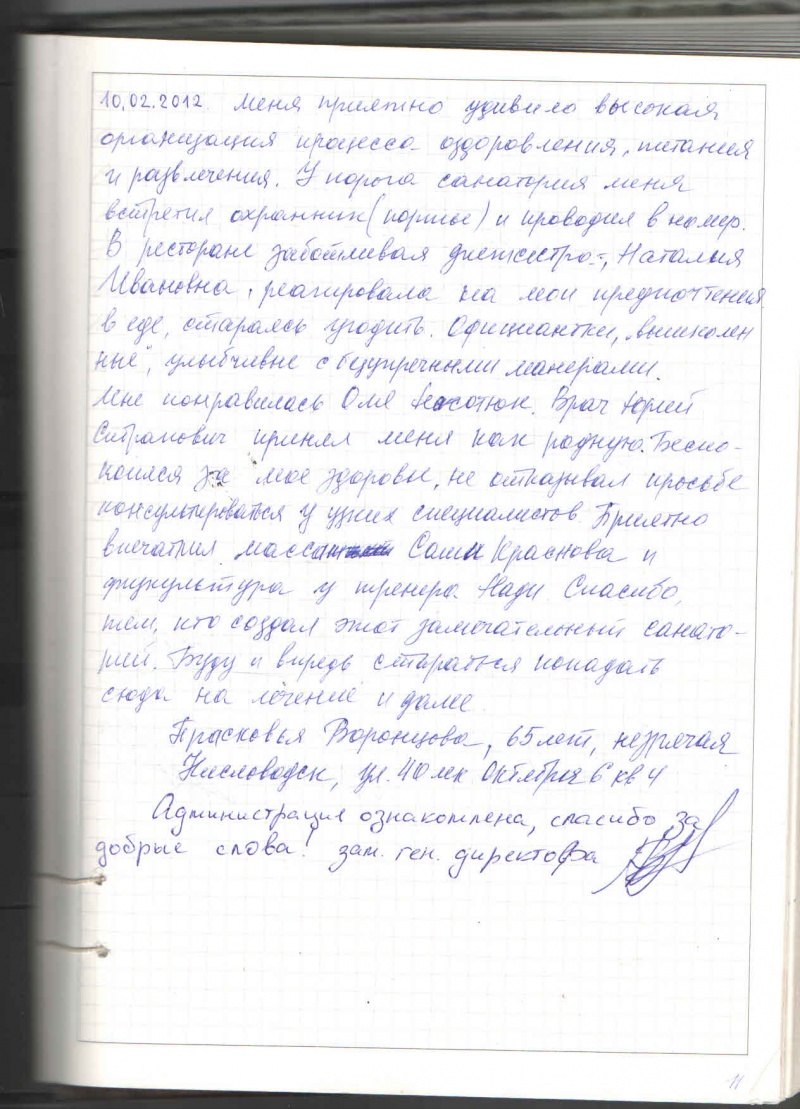 10.02.2012 меня приятно удивило высокая
организация процесса оздоровления, питания
и развлечения. У порога санатория меня
встретил охранник (портье) и проводил в номер.
В ресторане заботливая диетсестра-, Наталия
Ивановна, реагировала на мои предпочтения
в еде, стараясь угодить. Официантки, "вышколен
ные", улыбчивые с безупречными манерами.
Мне понравилась Оля. Врач Юрий
принял меня как родную. Беспо-
коился за мое здоровье, не отказывал просьбе
консультироваться у узких специалистов. Приятно
впечатлил массаж Саши Краснова и
физкультура у тренера Нади. Спасибо,
тем, кто создал этот замечательный санато-
рий. Буду и впредь стараться попадать
сюда на лечение и далее.
Прасковья Воронцова, 65 лет, незрячая
Кисловодск, ул. 40 лет Октября 6 кв 4
Администрация ознакомлена, спасибо за
добрые слова! зам. ген. директора
11